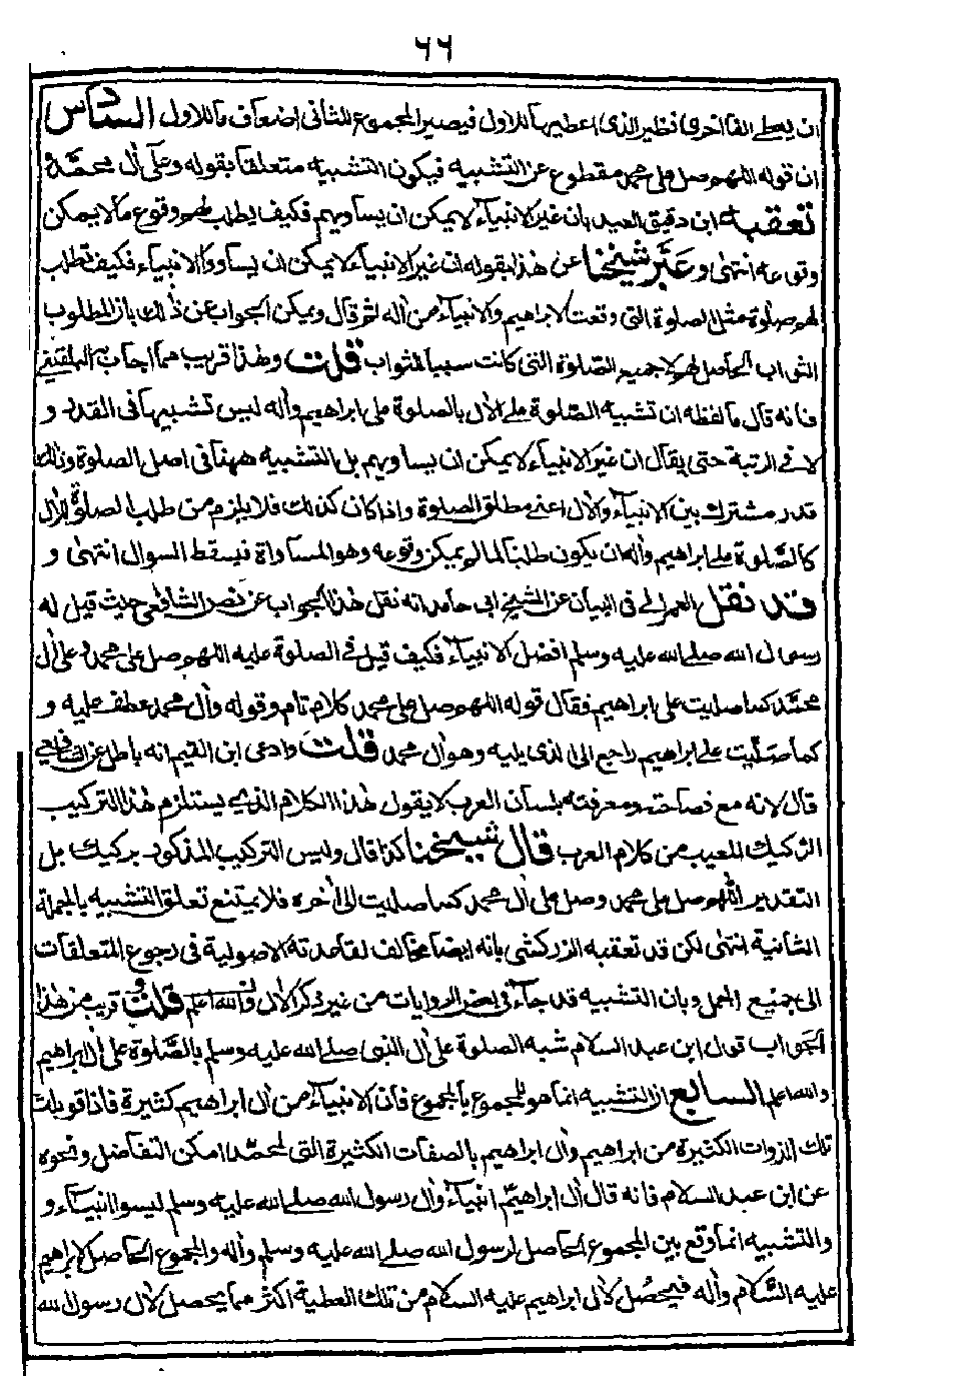 ٦٦
ان يعطى الفا اخرى نظير الذى اعطيها للاول فيصير المجموع للثانى اضعاف ما للاول السادس
ان قوله اللهم صل على محمد مقطوع عن التشبيه فيكون التشبيه متعلقا بقوله وعلى آل محمد
تعقبه ابن دقيق العيد بان غير الانبياء لا يمكن ان يساويهم فكيف يطلب لهم وقوع ما لا يمكن
وقوعه انتهى وعبر شيخنا عن هذا بقوله ان غير الانبياء لا يمكن ان يساووا الانبياء فكيف تطلب
لهم صلوة مثل الصلوة التى وقعت لابراهيم والانبياء من آله ثم قال ويمكن الجواب عن ذلك بان المطلوب
الثواب الحاصل لهم لا جميع الصلوة التى كانت سببا للثواب قلت وهذا قريب مما اجاب به البلقينى
فانه قال ما لفظه ان تشبيه الصلوة على الآل بالصلوة على ابراهيم وآله ليس تشبيها فى القدر و
لا فى الرتبة حتى يقال ان غير الانبياء لا يمكن ان يساويهم بل التشبيه ههنا فى اصل الصلوة وذلك
قدر مشترك بين الانبياء والآل اعنى مطلق الصلوة واذا كان كذلك فلا يلزم من طلب الصلوة للآل
كالصلوة على ابراهيم وآله ان يكون طلبا لما لم يمكن وقوعه وهو المساواة فيسقط السوال انتهى و
قد نقل العمرانى فى البيان عن الشيخ ابى حامد انه نقل هذا الجواب عن نص الشافعى حيث قيل له
رسول الله صلى الله عليه وسلم افضل الانبياء فكيف قيل فى الصلوة عليه اللهم صل على محمد وعلى آل
محمد كما صليت على ابراهيم فقال قوله اللهم صل على محمد كلام تام وقوله وآل محمد عطف عليه و
كما صليت على ابراهيم راجع الى الذى يليه وهو آل محمد قلت وادعى ابن القيم انه باطل عن الشافعى
قال لانه مع فصاحته ومعرفته بلسان العرب لا يقول هذا الكلام الذى يستلزم هذا التركيب
الركيك المعيب من كلام العرب قال شيخنا كذا قال وليس التركيب المذكور بركيك بل
التقدير اللهم صل على محمد وصل على آل محمد كما صليت الى آخره فلا يمتنع تعلق التشبيه بالجملة
الثانية انتهى لكن قد تعقبه الزركشى بانه ايضا مخالف لقاعدته الاصولية فى رجوع المتعلقات
الى جميع الجمل وبان التشبيه قد جاء فى بعض الروايات من غير ذكر الآل والله اعلم قلت وقريب من هذا
الجواب قول ابن عبد السلام شبه الصلوة على آل النبى صلى الله عليه وسلم بالصلوة على آل ابراهيم
والله اعلم السابع ان التشبيه انما هو للمجموع بالمجموع فان الانبياء من آل ابراهيم كثيرة فاذا قوبلت
تلك الذوات الكثيرة من ابراهيم وآل ابراهيم بالصفات الكثيرة التى لمحمد امكن التفاضل ونحوه
عن ابن عبد السلام فانه قال آل ابراهيم انبياء وآل رسول الله صلى الله عليه وسلم ليسوا انبياء و
والتشبيه انما وقع بين المجموع الحاصل لرسول الله صلى الله عليه وسلم وآله والمجموع الحاصل لابراهيم
عليه السلام وآله فيحصل لآل ابراهيم عليه السلام من تلك العطية اكثر مما يحصل لآل رسول الله